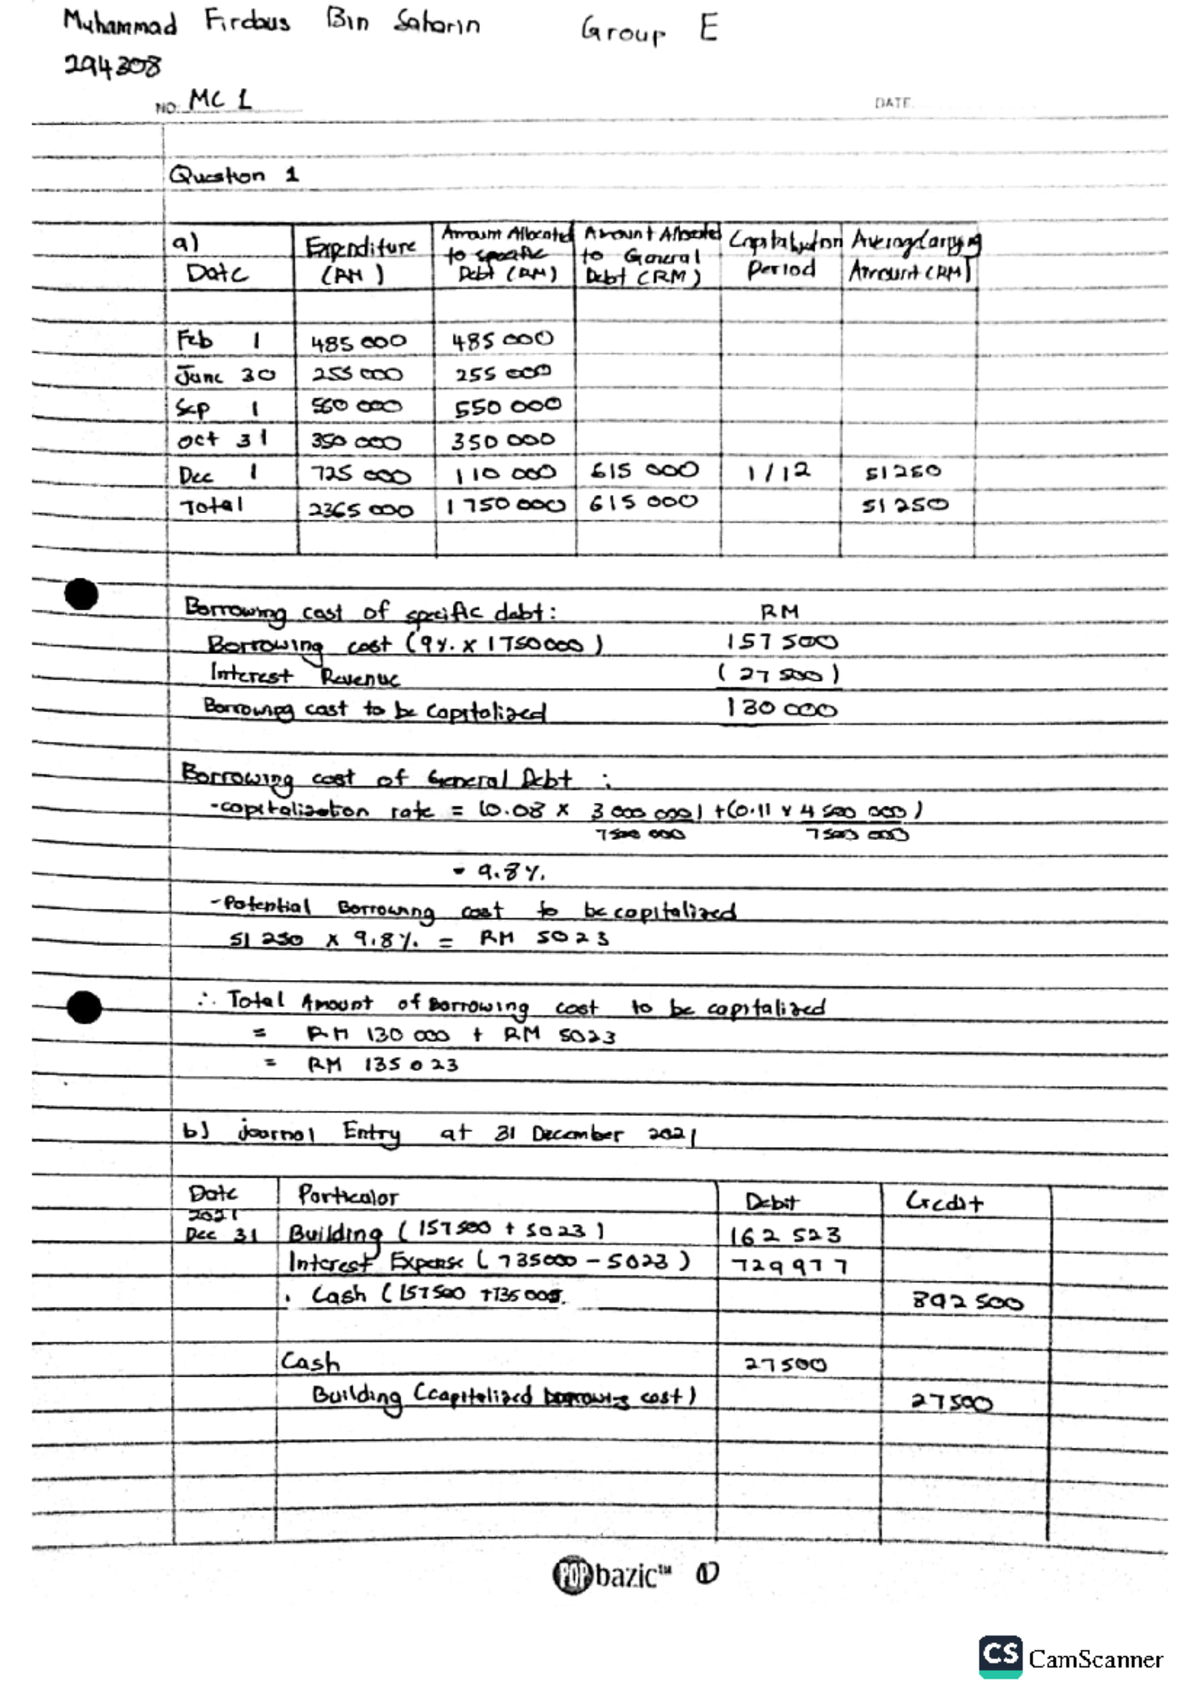 Muhammad Firdaus Bin Saharin Group E
294308
NO. MC 1 DATE.
Question 1
a) Date Expenditure (RM) Amount Allocated to specific Debt (RM) Amount Allocated to General Debt (RM) Capitalization Period Average Carrying Amount (RM)
Feb 1 485 000 485 000
June 30 255 000 255 000
Sep 1 550 000 550 000
Oct 31 350 000 350 000
Dec 1 725 000 110 000 615 000 1/12 51 250
Total 2365 000 1 750 000 615 000 51 250
Borrowing cost of specific debt: RM
Borrowing cost (9% x 1750000) 157 500
Interest Revenue (27 500)
Borrowing cost to be capitalized 130 000
Borrowing cost of General Debt :
-capitalization rate = (0.08 x 3 000 000/7500 000) + (0.11 x 4 500 000/7500 000)
= 9.8%
-Potential Borrowing cost to be capitalized
51 250 x 9.8% = RM 5023
∴ Total Amount of Borrowing cost to be capitalized
= RM 130 000 + RM 5023
= RM 135 023
b) Journal Entry at 31 December 2021
Date Particular Debit Credit
2021
Dec 31 Building (157500 + 5023) 162 523
Interest Expense (735000 - 5023) 729977
Cash (157500 + 735000) 892 500
Cash 27500
Building (capitalized borrowing cost) 27500
POP bazic™ 1
CS CamScanner